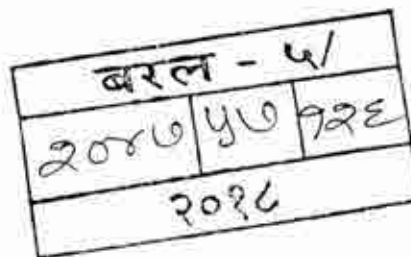 बरल - ५/
२०४७ ५७ १२६
२०१८